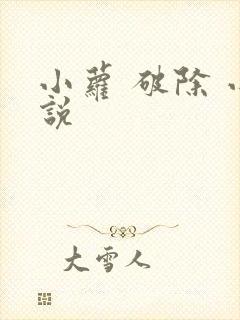 小蘿 破除
說
大雪人